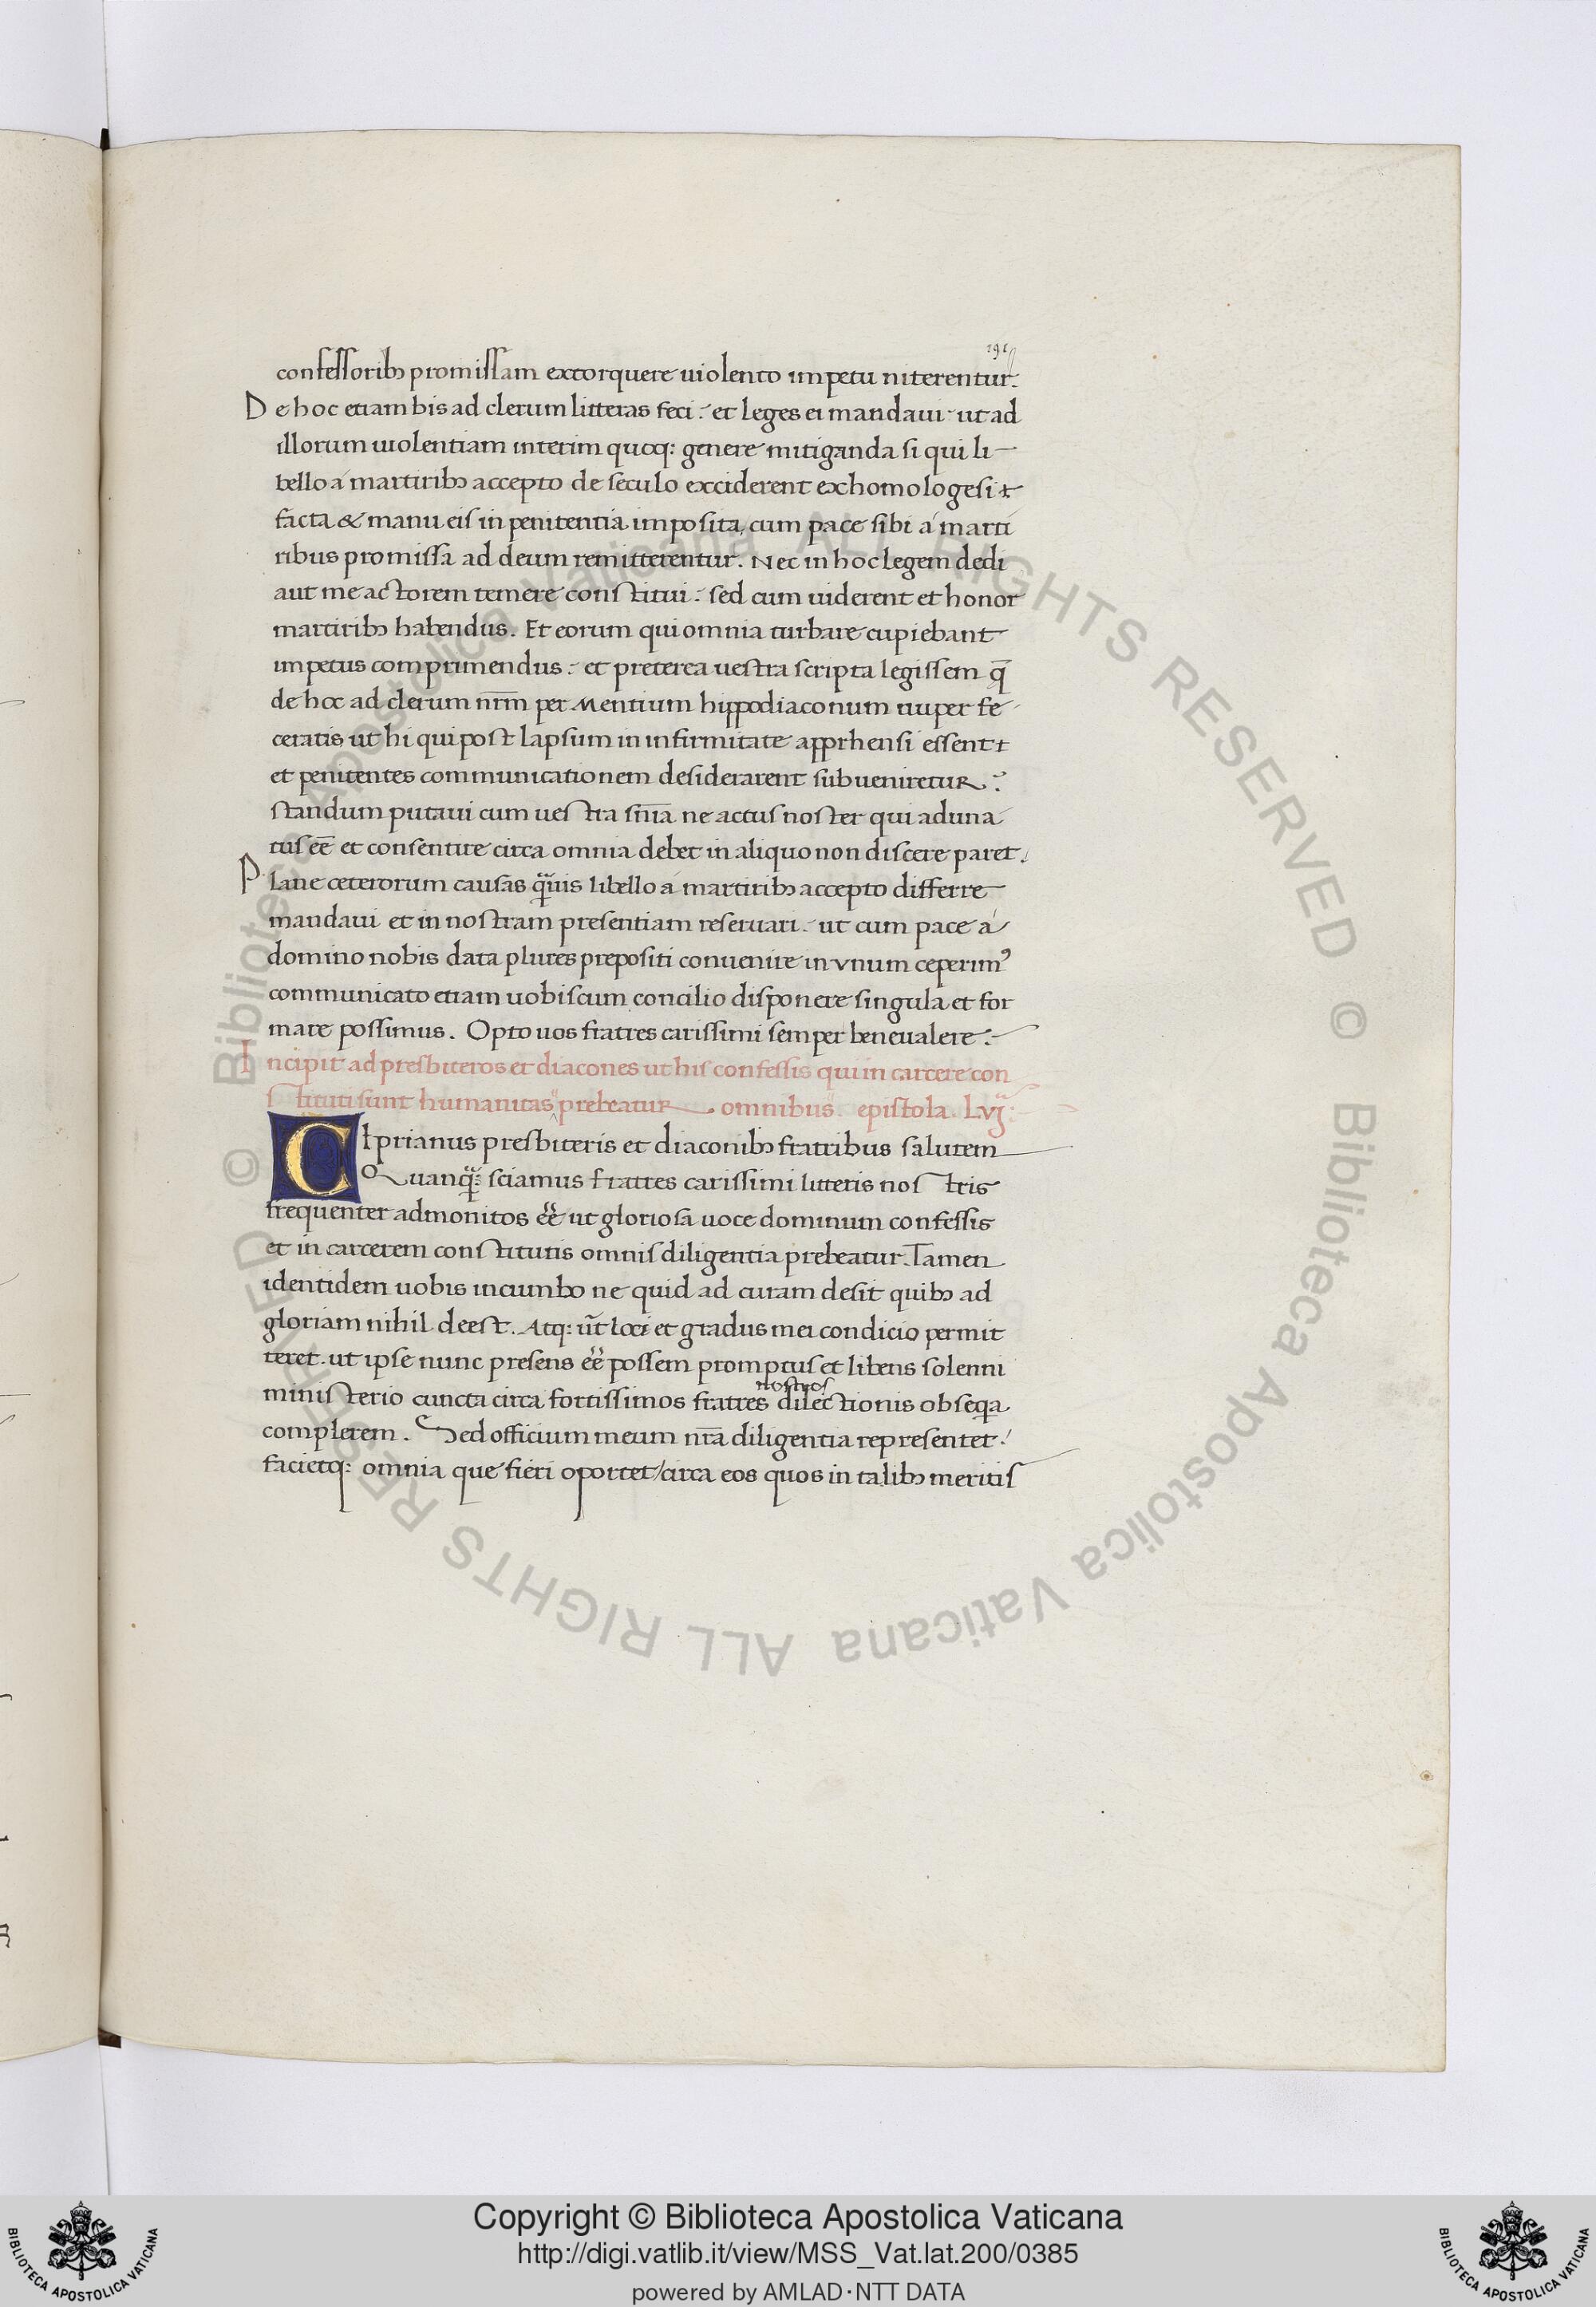 191
confessoribꝫ promissam extorquere uiolento impetu niterentur.
De hoc etiam bis ad clerum litteras feci. et leges ei mandaui. ut ad
illorum uiolentiam interim quoq: genere mitiganda si qui li
bello á martiribꝫ accepto de seculo exciderent exhomologesi
facta & manu eis in penitentia imposita, cum pace sibi á marti
ribus promissa ad deum remitterentur. Nec in hoc legem dedi
aut me actorem temere constitui. sed cum uiderent et honor
martiribꝫ habendus. Et eorum qui omnia turbare cupiebant
impetus comprimendus. et preterea uestra scripta legissem q̄
de hoc ad clerum nr̄m per Mentium hippodiaconum nuper fe
ceratis ut hi qui post lapsum in infirmitate apprhensi essent
et penitentes communicationem desiderarent subueniretur.
standum putaui cum uestra sn̄ia ne actus noster qui aduna
tus eē et consentire circa omnia debet in aliquo non discere paret.
Plane ceterorum causas q̈uis libello á martiribꝫ accepto differre
mandaui et in nostram presentiam reseruari. ut cum pace á
domino nobis data plures prepositi conuenire in vnum ceperimꝰ
communicato etiam uobiscum concilio disponere singula et for
mare possimus. Opto uos fratres carissimi semper bene ualere.
Incipit ad presbiteros et diacones ut his confessis qui in carcere con
stituti sunt humanitas prebeatur omnibus. epistola. Lvij.
CIprianus presbiteris et diaconibꝫ fratribus salutem
Quanq̈: sciamus fratres carissimi litteris nostris
frequenter admonitos eē ut gloriosa uoce dominum confessis
et in carcerem constitutis omnis diligentia prebeatur. Tamen
identidem uobis incumbo ne quid ad curam desit quibꝫ ad
gloriam nihil deest. Atq: ut̄ loci et gradus mei condicio permit
teret. ut ipse nunc presens eē possem promptus et libens solenni
nostros
ministerio cuncta circa fortissimos fratres dilectionis obseq̈a
complerem. Sed officium meum nr̄a diligentia representet.
facietq: omnia que fieri oportet/circa eos quos in talibꝫ meritis
© Biblioteca Apostolica Vaticana ALL RIGHTS RESERVED © Biblioteca Apostolica Vaticana ALL RIGHTS RESERVED
BIBLIOTECA APOSTOLICA VATICANA
Copyright © Biblioteca Apostolica Vaticana
http://digi.vatlib.it/view/MSS_Vat.lat.200/0385
powered by AMLAD·NTT DATA
BIBLIOTECA APOSTOLICA VATICANA